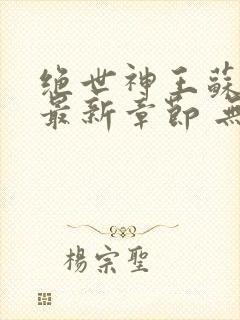 绝世神王蘇
最新章節 無
楊宗聖